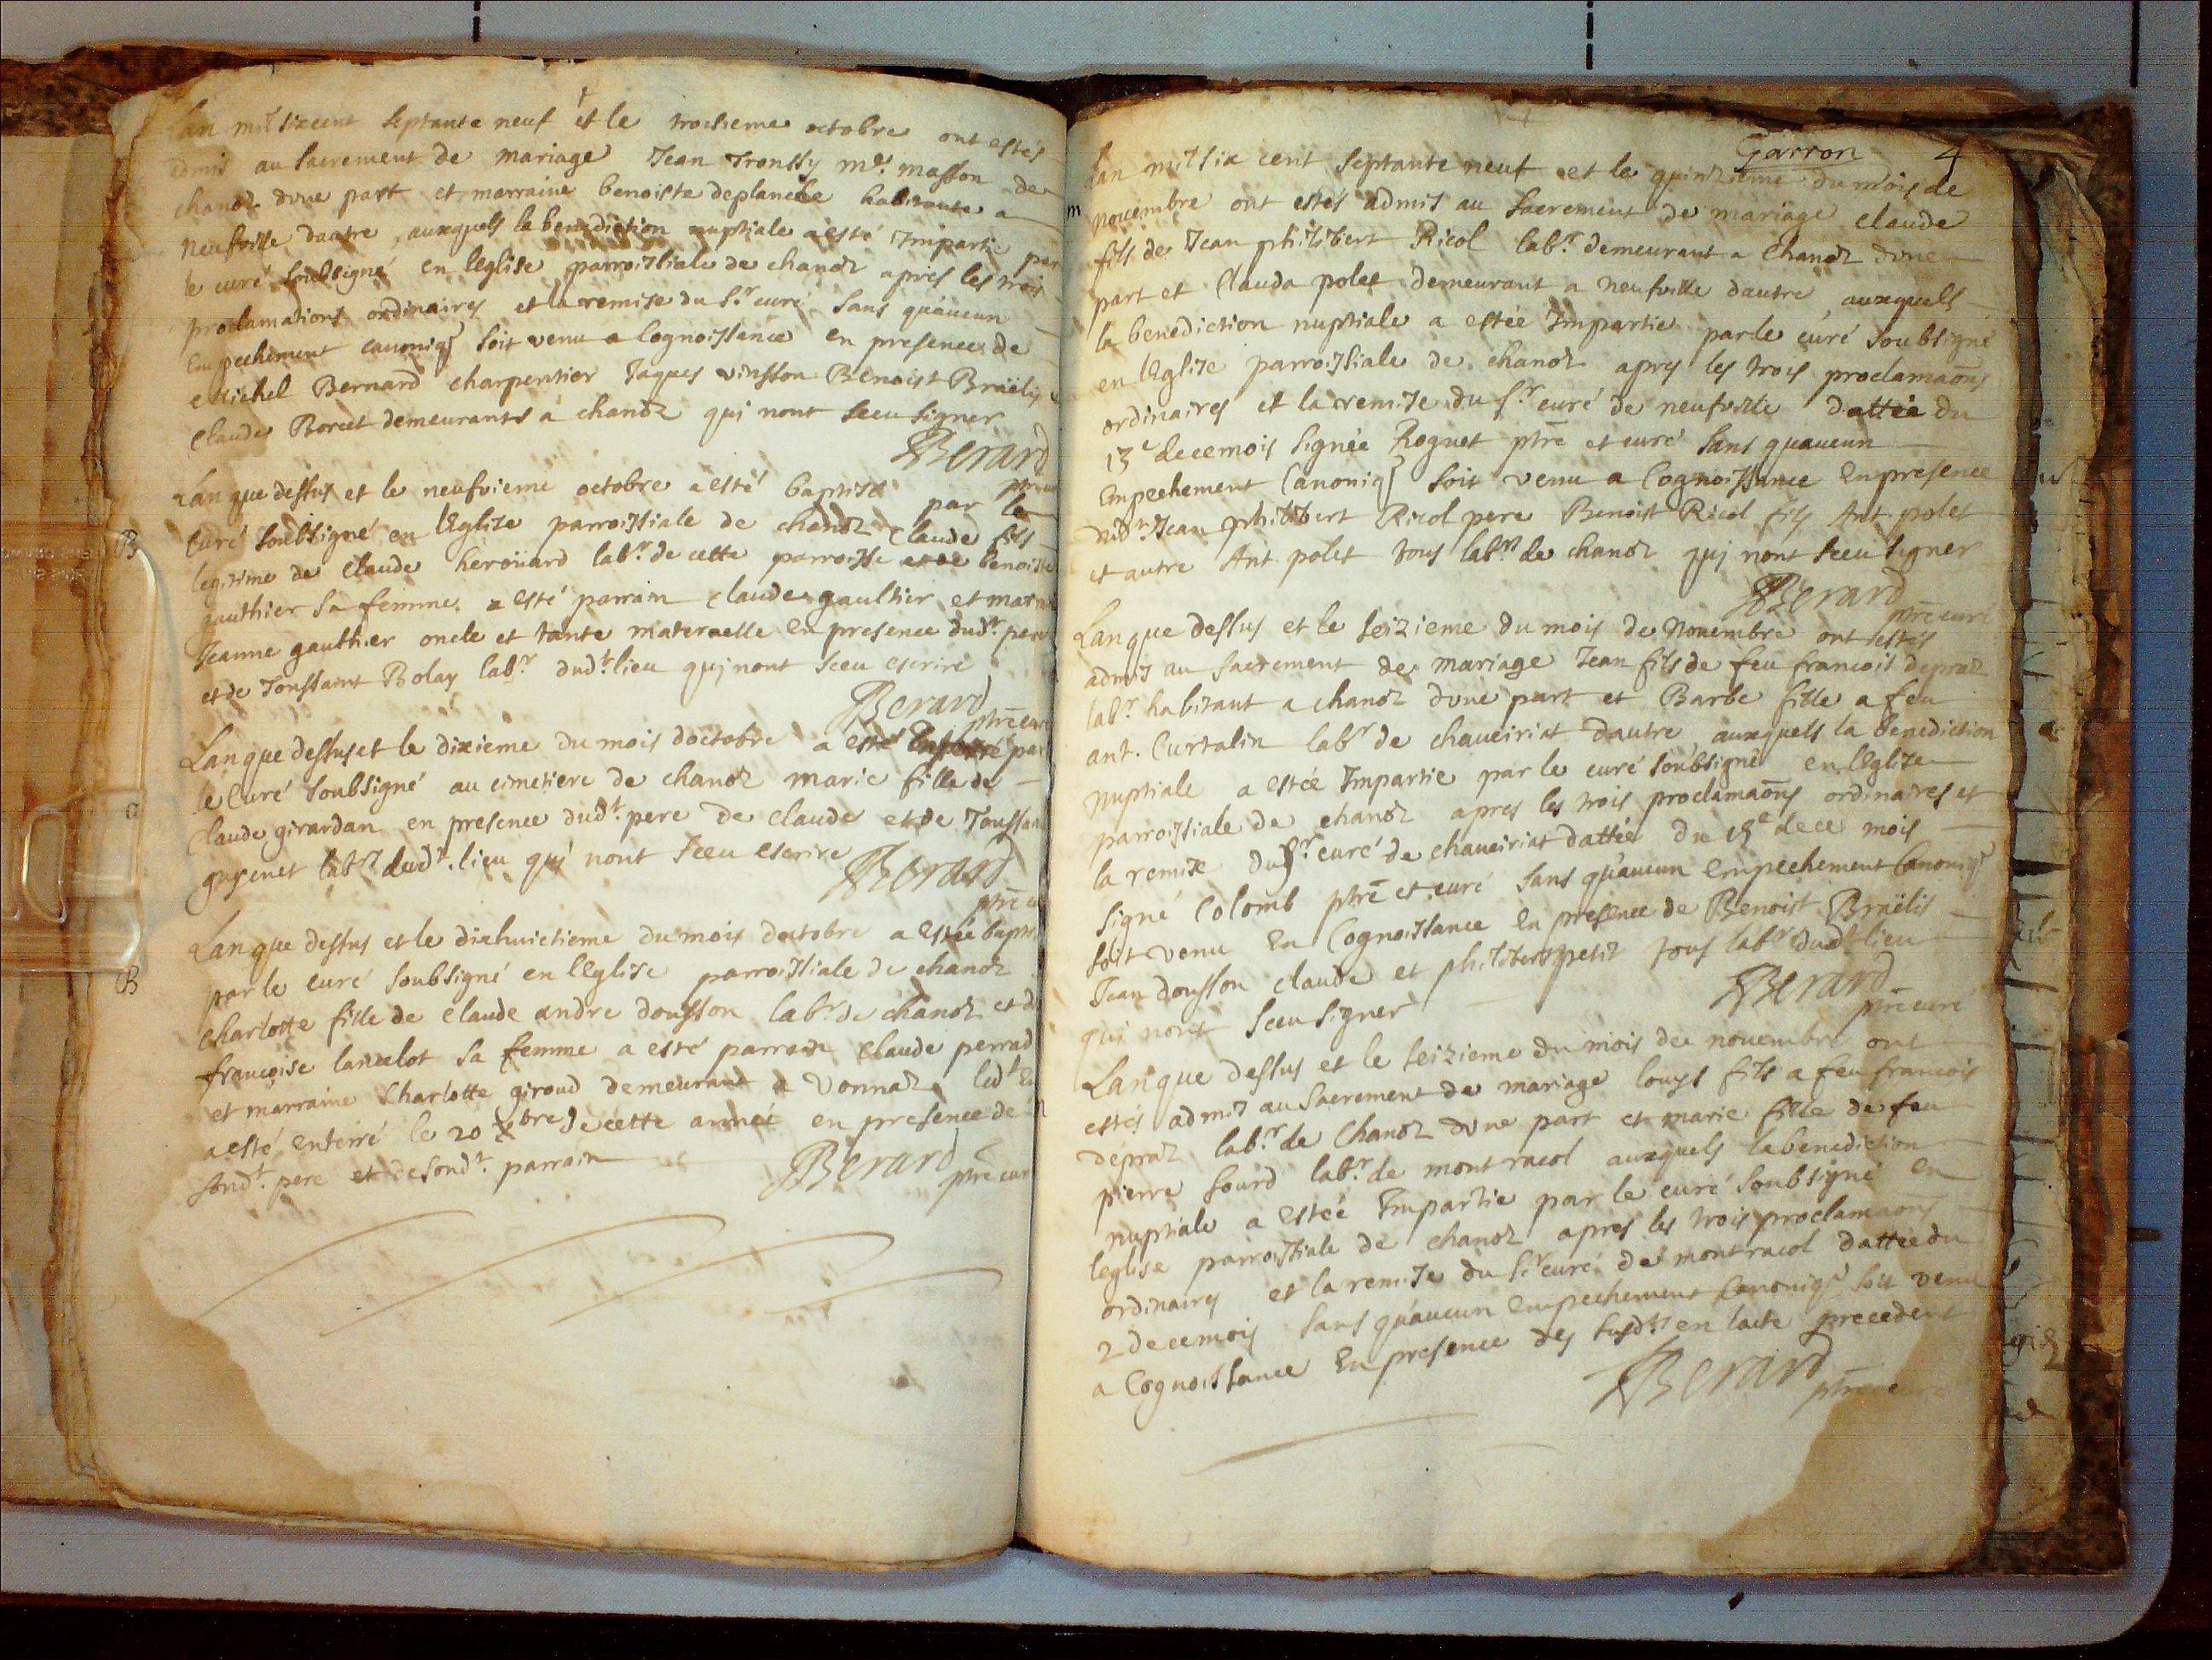 Lan mil sixcent septante neuf et le troisieme octobre ont estés
admis au sacrement de mariage Jean Tronssy me. masson de
chanoz dvne part et marraine benoiste deplanche habitante a
neufville dautre, auxquels la benediction nuptiale a esté Impartie par
le curé soubsigné en leglise parroissiale de chanoz apres les trois
proclamations ordinaires et la remise du sr curé sans quaucun
Empechement canoniq soit venu a Cognoissance en presence de
Michel Bernard charpentier Jaques vinsson Benoist Braëlis
Claude Borcet demeurants a chanoz qui nont sceu signer
Berard
Lan que dessus et le neufvieme octobre a esté baptisé par le
Curé soubsigné en lEglise parroissiale de chanoz Claude fils
legitime de Claude heroüard labr. de cette parroisse et de benoiste
gauthier sa femme. a esté parrain claude gaultier et
Jeanne gauthier oncle et tante maternelle en presence dudt. pere
et de Toussaint Bolay labr dudt. lieu qui nont sceu escrire
Berard
ptre curé
Lan que dessus et le dixieme du mois doctobre a esté Enterré par
le Curé soubsigné au cimetiere de chanoz marie fille de
Claude girardan en presence dudt. pere De claude et de Toussaint
guyenet labrs dudt. lieu qui nont sceu escrire
Berard
Lan que dessus et le dixhuictieme du mois doctobre a estée
par le curé soubsigné en lEglise parroissiale de chanoz
Charlotte fille de Claude andre dousson labr de chanoz et de
francoise lancelot sa femme a esté parrain Claude perrad
et marraine Charlotte giroud demeurant a Vonnaz
a esté enterré le 20 bre de cette année en presence de
sondt. pere et de sondt. parrain
Berard
Garron 4
Lan mil six cent septante neuf et le quinzieme du mois de
m novembre ont estés admis au sacrement de mariage claude
fils de Jean philibert Ricol labr demeurant a Chanoz dvne
part et Clauda polet demeurant a neufville dautre auxquels
la benediction nuptiale a estée Impartie par le curé soubsigné
en lEglise parroissiale de chanoz apres les trois proclamaons
ordinaires et la remise du sr. curé de neufville dattée du
13e decemois signée Roguet ptre et curé sans quaucun
Empechement Canoniq soit venu a Cognoissance En presence
dudt. Jean philibert Ricol pere Benoist Ricol fils Ant polet
et autre Ant. polet tous labrs de chanoz qui nont sceu signer
Berard
ptre curé
Lan que dessus et le seizieme du mois de Novembre ont estés
admis au sacrement de mariage Jean fils de feu francois depraz
labr. habitant a chanoz dvne part et Barbe fille a feu
ant. Curtalin labr de chaveiriat dautre auxquels la benediction
nuptiale a estée Impartie par le curé soubsigné en lEglise
parroissiale de chanoz apres les trois proclamaons ordinaires et
la remise du sr curé de chaveiriat dattée du 15e dece mois
signé Colomb ptre et curé sans quaucun Empechement Canoniq
soit venu En Cognoissance En presence de Benoist Braëlis
Jean dousson claude et philibert petit tous labr dudt lieu
qui nont sceu signer
Berard
ptre curé
Lan que dessus et le seizieme du mois de novembre ont
estés admis au sacrement de mariage louys fils a feu francois
depraz labr. de Chanoz dvne part et marie fille de feu
pierre sourd labr. de montracol auxquels la benediction
nuptiale a estée Impartie par le curé soubsigné En
leglise parroissiale de chanoz apres les trois proclamaons
ordinaires et la remise du sr curé de montracol dattée du
2 decemois sans quaucun Empechement Canoniq soit venu
a Cognoissance En presence des susdts en lacte precedent
Berard